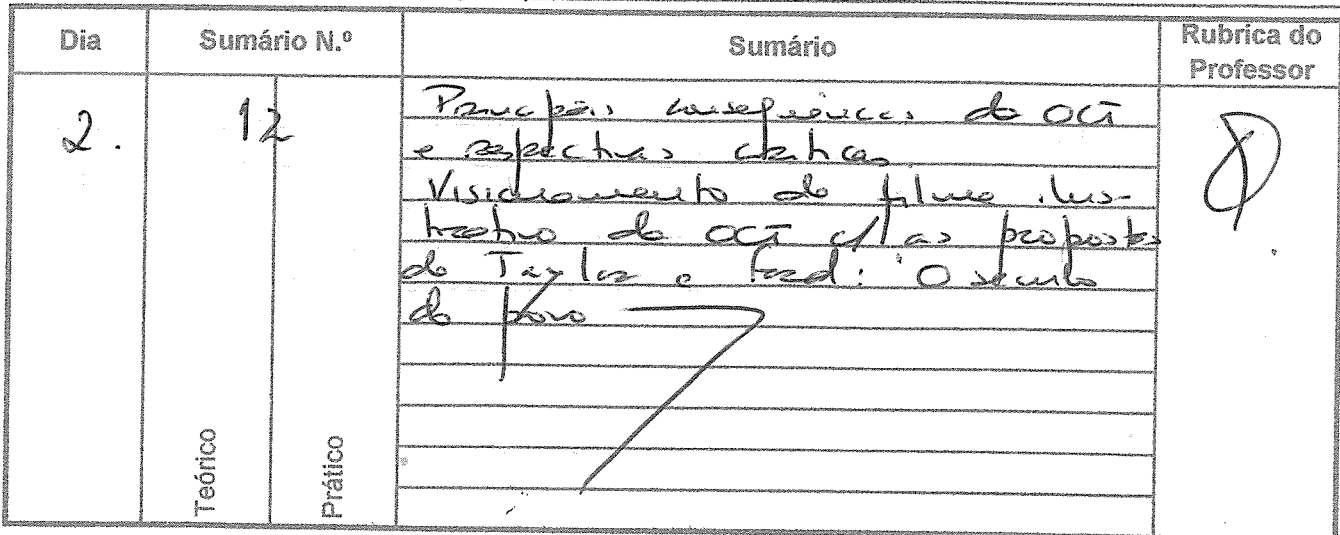 Dia Sumário N.º Sumário Rubrica do Professor
2. 12
Principais consequências da OCT
e respectivas críticas
Visionamento do filme ilus-
trativo da OCT c/ as propostas
de Taylor e Ford: O século
do povo
Teórico Prático